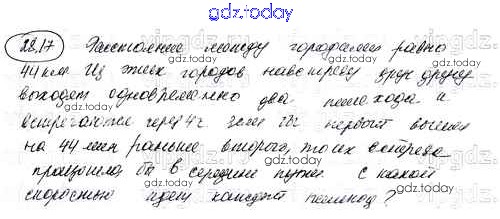 gdz.today
28.17 Расстояние между городами равно
44 км Из этих городов навстречу друг другу
выходят одновременно два пешехода и
встречаются через 4ч Если бы первый вышел
на 44 мин раньше второго, то их встреча
произошла бы в середине пути. С какой
скоростью идет каждый пешеход?